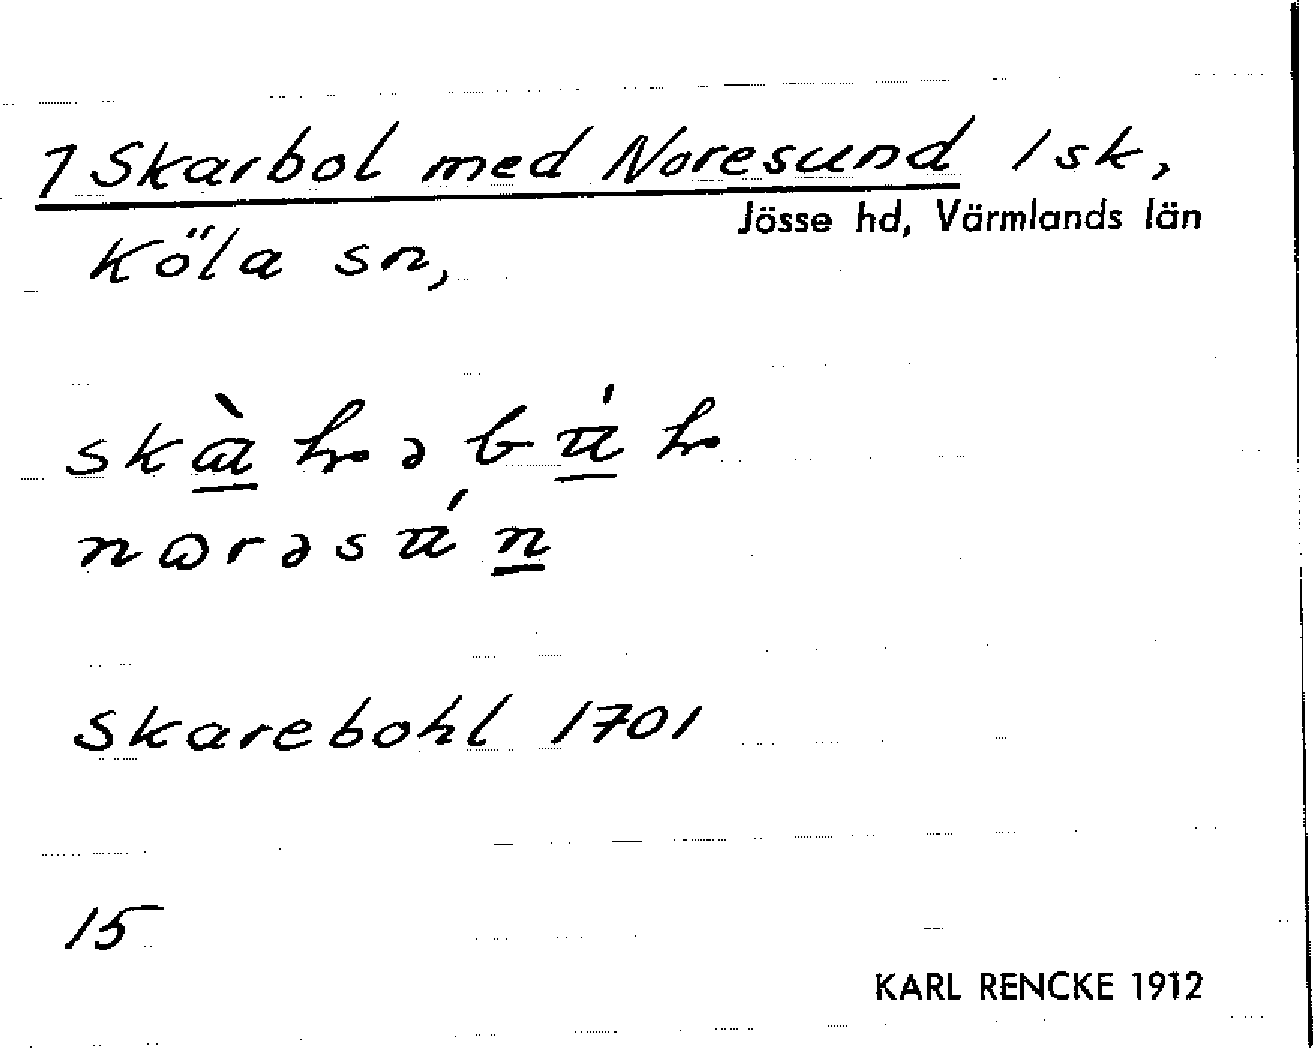 1 Skarbol med Noresund 1sk,
Jösse hd, Värmlands län
Köla sn,
Skarebohl 1701
15
KARL RENCKE 1912